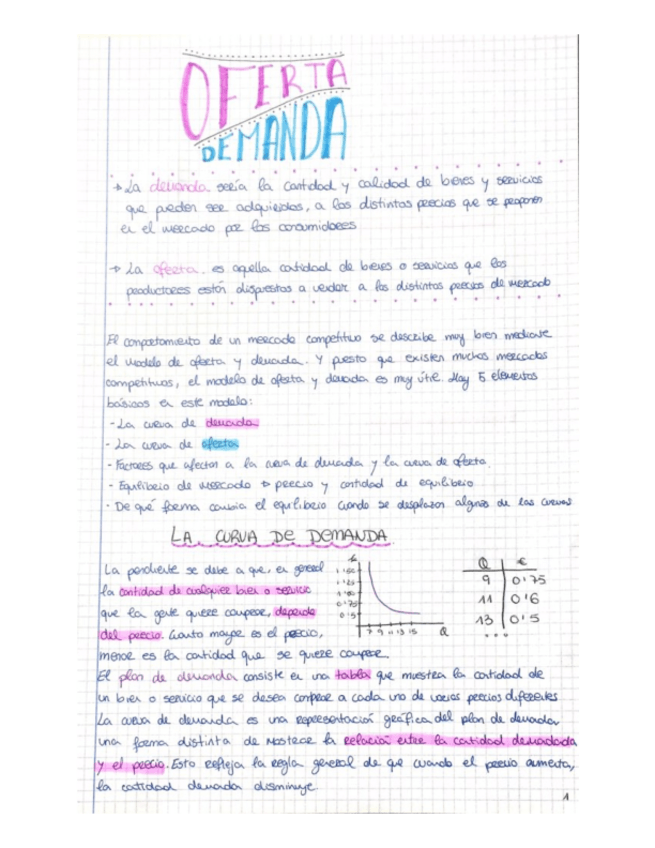 OFERTA
DEMANDA
→ La demanda sería la cantidad y calidad de bienes y servicios
que pueden ser adquiridos, a los distintos precios que se proponen
en el mercado por los consumidores
→ La oferta es aquella cantidad de bienes o servicios que los
productores están dispuestos a vender a los distintos precios de mercado
El comportamiento de un mercado competitivo se describe muy bien mediante
el modelo de oferta y demanda. Y puesto que existen muchos mercados
competitivos, el modelo de oferta y demanda es muy útil. Hay 5 elementos
básicos en este modelo:
- La curva de demanda
- La curva de oferta
- Factores que afectan a la curva de demanda y la curva de oferta.
- Equilibrio de mercado → precio y cantidad de equilibrio
- De qué forma cambia el equilibrio cuando se desplazan algunas de las curvas
LA CURVA DE DEMANDA
La pendiente se debe a que, en general
la cantidad de cualquier bien o servicio
que la gente quiere comprar, depende
del precio. Cuanto mayor es el precio,
menor es la cantidad que se quiere comprar.
€
1'50
1'25
1'00
0'75
0'5
7 9 11 13 15 Q
Q €
9 0'75
11 0'6
13 0'5
...
El plan de demanda consiste en una tabla que muestra la cantidad de
un bien o servicio que se desea comprar a cada uno de varios precios diferentes
La curva de demanda es una representación gráfica del plan de demanda
una forma distinta de mostrar la relación entre la cantidad demandada
y el precio. Esto refleja la regla general de que cuando el precio aumenta,
la cantidad demanda disminuye.
1